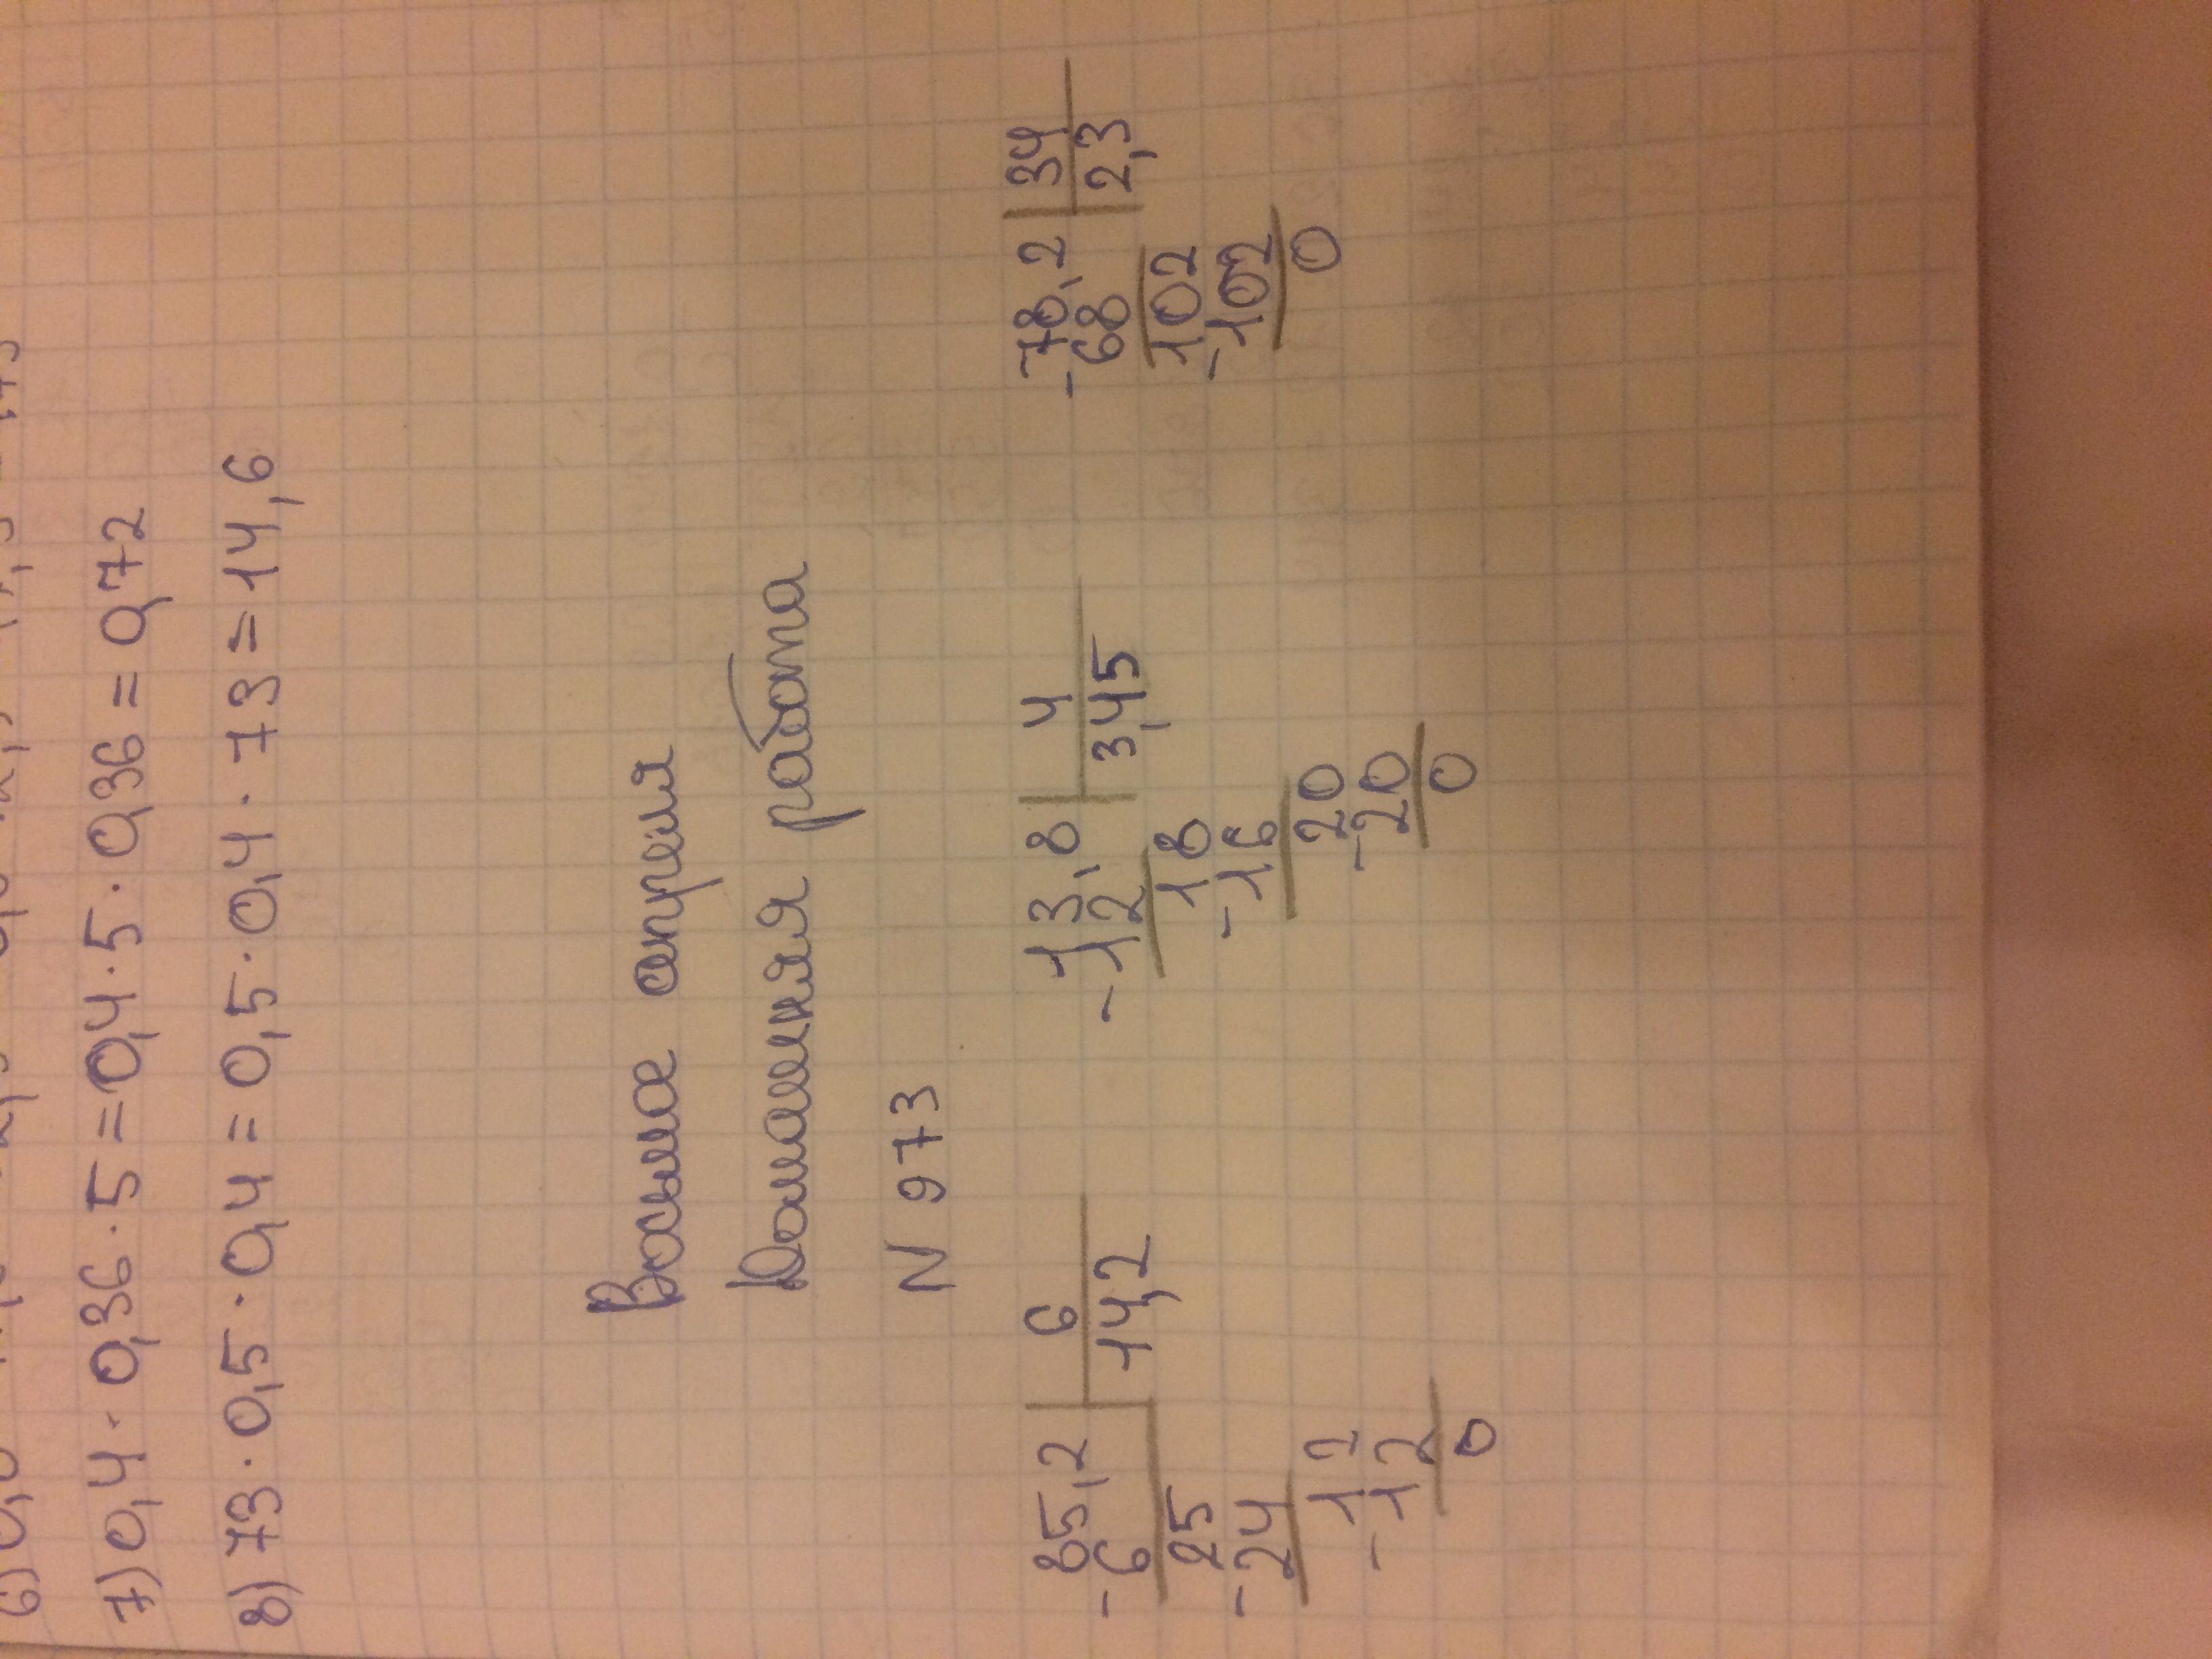 7) 0,4 · 0,36 · 5 = 0,4 · 5 · 0,36 = 0,72
8) 73 · 0,5 · 0,4 = 0,5 · 0,4 · 73 = 14,6
Восьмое апреля
Домашняя работа
N 973
85,2 6 13,8 4 78,2 34
-6 14,2 -12 3,45 -68 2,3
25 18 102
-24 -16 -102
12 20 0
-12 -20
0 0